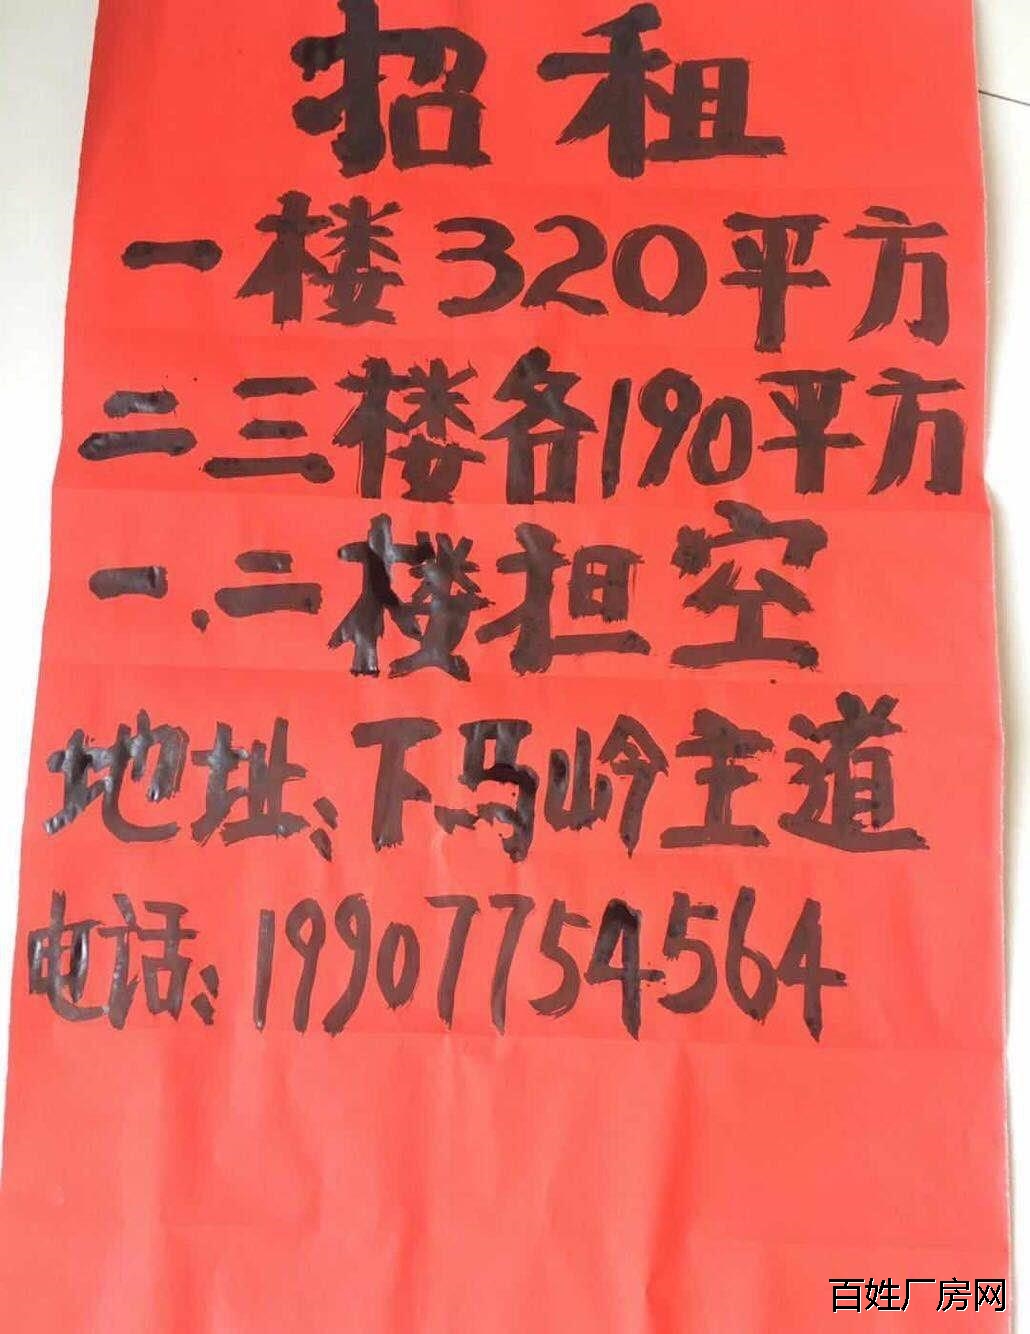 招租
一楼320平方
二三楼各190平方
一.二楼担空
地址:下马岭主道
电话:19907754564
百姓厂房网